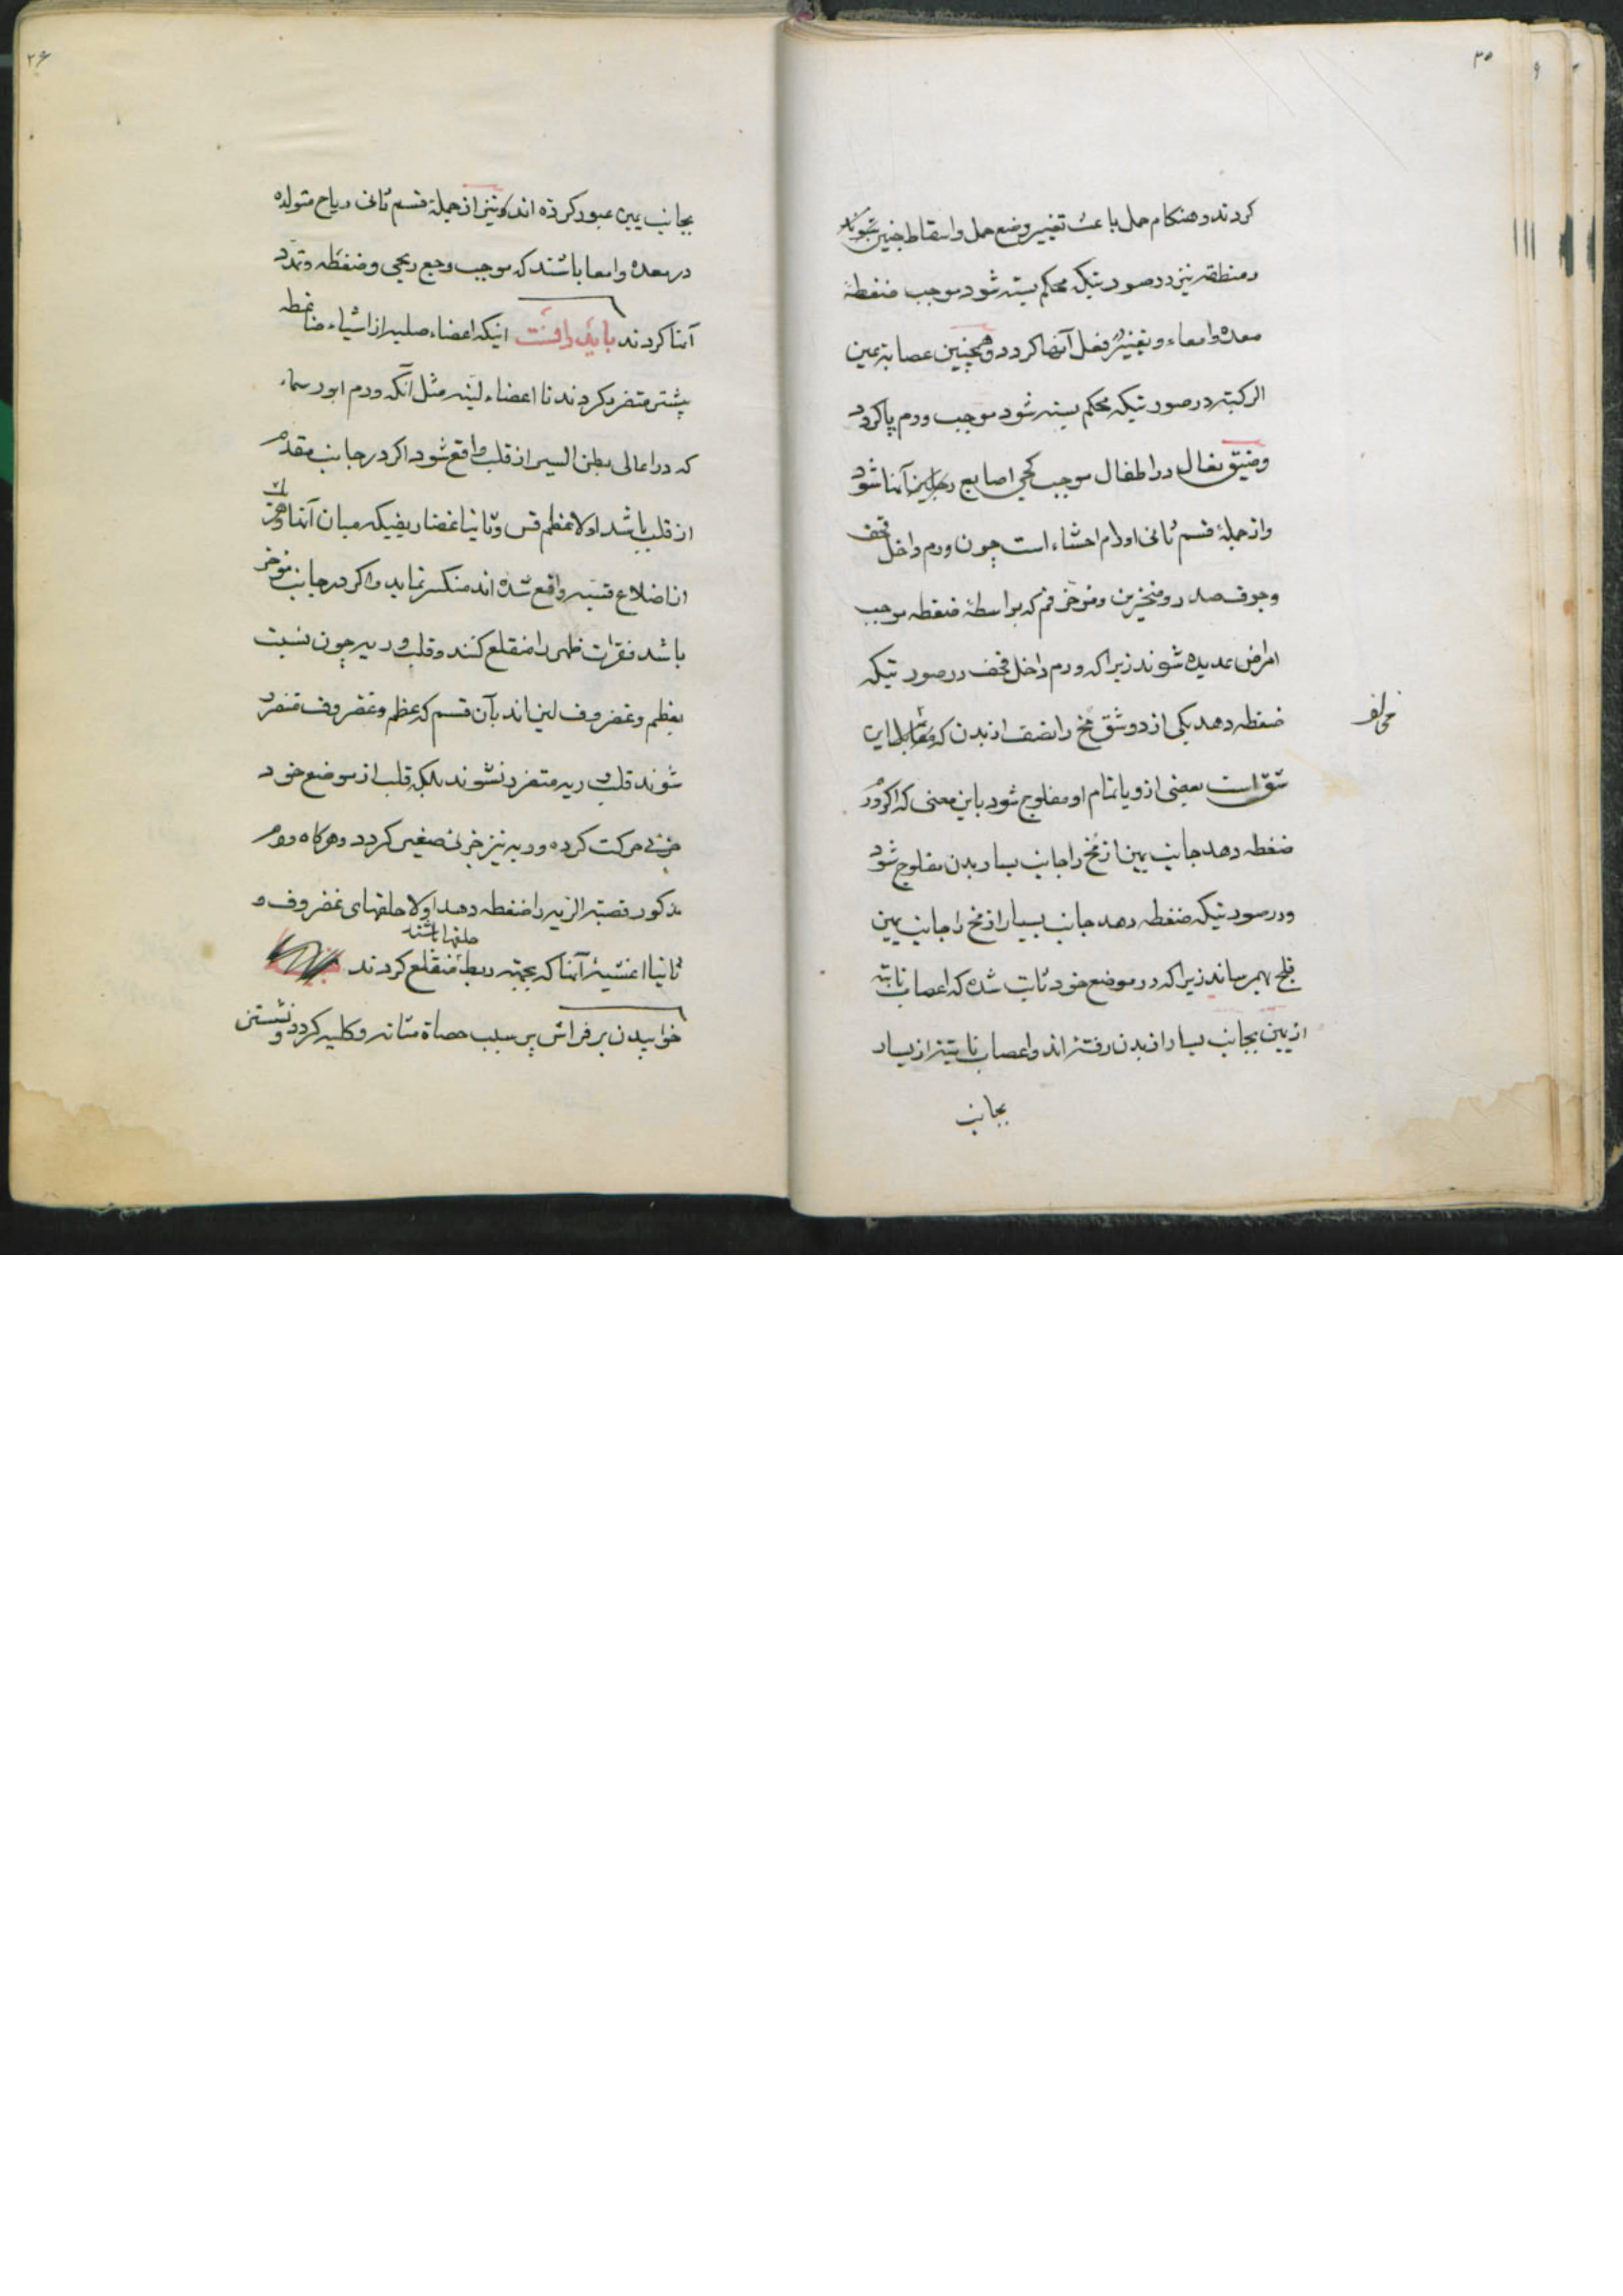 ۳۵
کردند و هنکام حمل باعث تغییر وضع حمل و اسقاط جنین شوند
و منطقه نیز در صورتیکه محکم بسته شود موجب ضغطهٔ
معده و امعاء و تغییر فعل آنها کردد و همچنین عصابهٔ عین
الرکبته در صورتیکه محکم بسته شود موجب ورم پا کردد
و ضیق نعال در اطفال موجب کجی اصابع رجلین آنها شود
و از جملهٔ قسم ثانی اورام احشاء است چون ورم داخل قحف
و جوف صدر و منخرین و مؤخر فم که بواسطهٔ ضغطه موجب
امراض عدیده شوند زیرا که ورم داخل قحف در صورتیکه
ضغطه دهد یکی از دو شق مخ را نصف از بدن که مقابل این
مخالف
شق است بعضی ازو یا تمام او مفلوج شود باین معنی که اکر ورم
ضغطه دهد جانب یمین از مخ را جانب یسار بدن مفلوج شود
و در صورتیکه ضغطه دهد جانب یسار از مخ را جانب یمین
فلج بهم رساند زیرا که در موضع خود ثابت شده که اعصاب نابته
از یمین بجانب یسار از بدن رفته اند و اعصاب نابته از یسار
بجانب
۳۶
بجانب یمین عبور کرده اند و نیز از جملهٔ قسم ثانی ریاح متولده
در معده و امعا باشند که موجب وجع ریحی و ضغطه و تمدد
آنها کردند باید دانست اینکه اعضاء صلبه از اشیاء ضاغطه
بیشتر متضرر کردند تا اعضاء لینه مثل آنکه ورم ابورسماء
که در اعالی بطن الیسر از قلب واقع شود اکر در جانب مقدم
از قلب باشد اولا عظم قس و ثانیا غضاریفیکه میان آنها و
از اضلاع قسیه واقع شده اند منکسر نماید و اکر در جانب مؤخر
باشد فقرات ظهر را منقلع کنند و قلب و ریه چون نسبت
بعظم و غضروف لین اند بآن قسم که عظم و غضروف متضرر
شوند قلب و ریه متضرر نشوند بلکه قلب از موضع خود
جزئی حرکت کرده و ریه نیز جزئی صغیر کردد و هرکاه ورم
مذکور قصبته الریه را ضغطه دهد اولا حلقهای غضروف و
ثانیا اغشیهٔ آنها که بجهته ربط حلقها باشند منقلع کردند
خوابیدن بر فراش پر سبب حصاة مثانه و کلیه کردد و نشستن